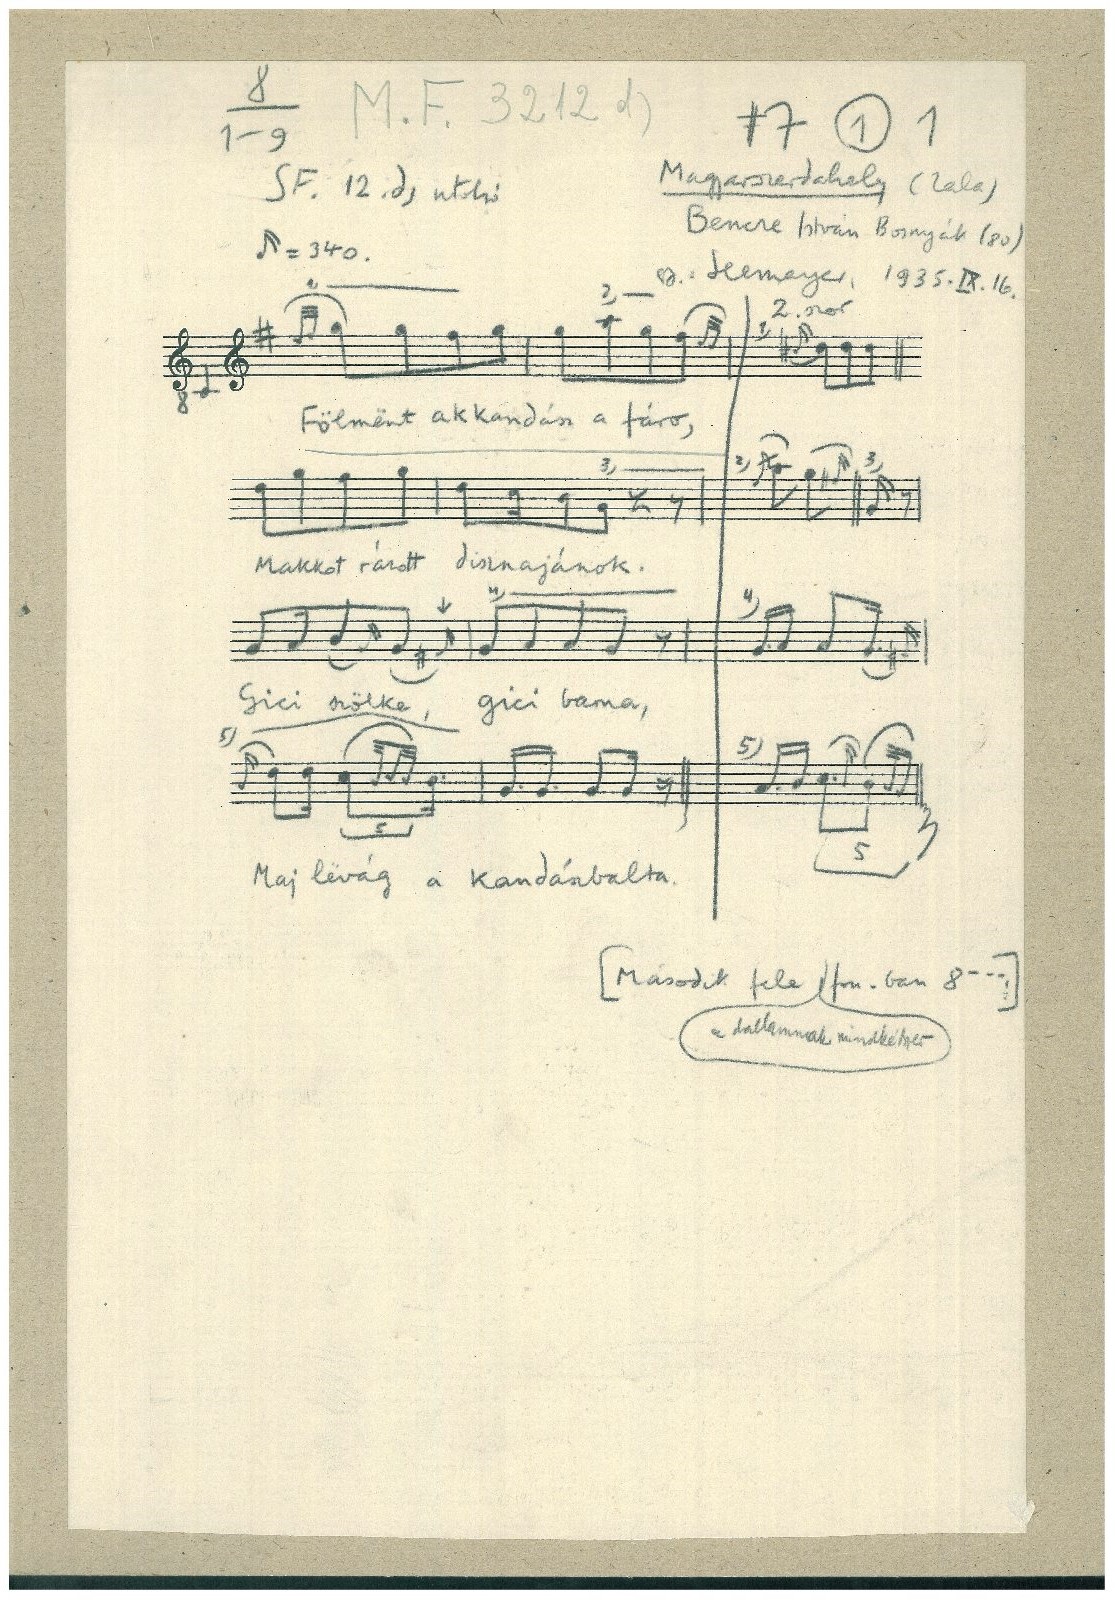 8
1-9
M.F. 3212 d)
#7 ① 1
SF. 12.d, utolsó
Magyarszerdahely (Zala)
Bencze István Bosnyák (80)
= 340.
Seemayer, 1935.IX.16.
2,
2.szor
1,
8
Fölmënt akkandász a fáro,
3,
2,
3,
Makkot rázott disznajának.
4,
4,
Gici szölke, gici barna,
5)
5)
5
5
Maj lëvág a kandászbalta.
[Második fele fon.ban 8----]
a dallamnak mindkétszer